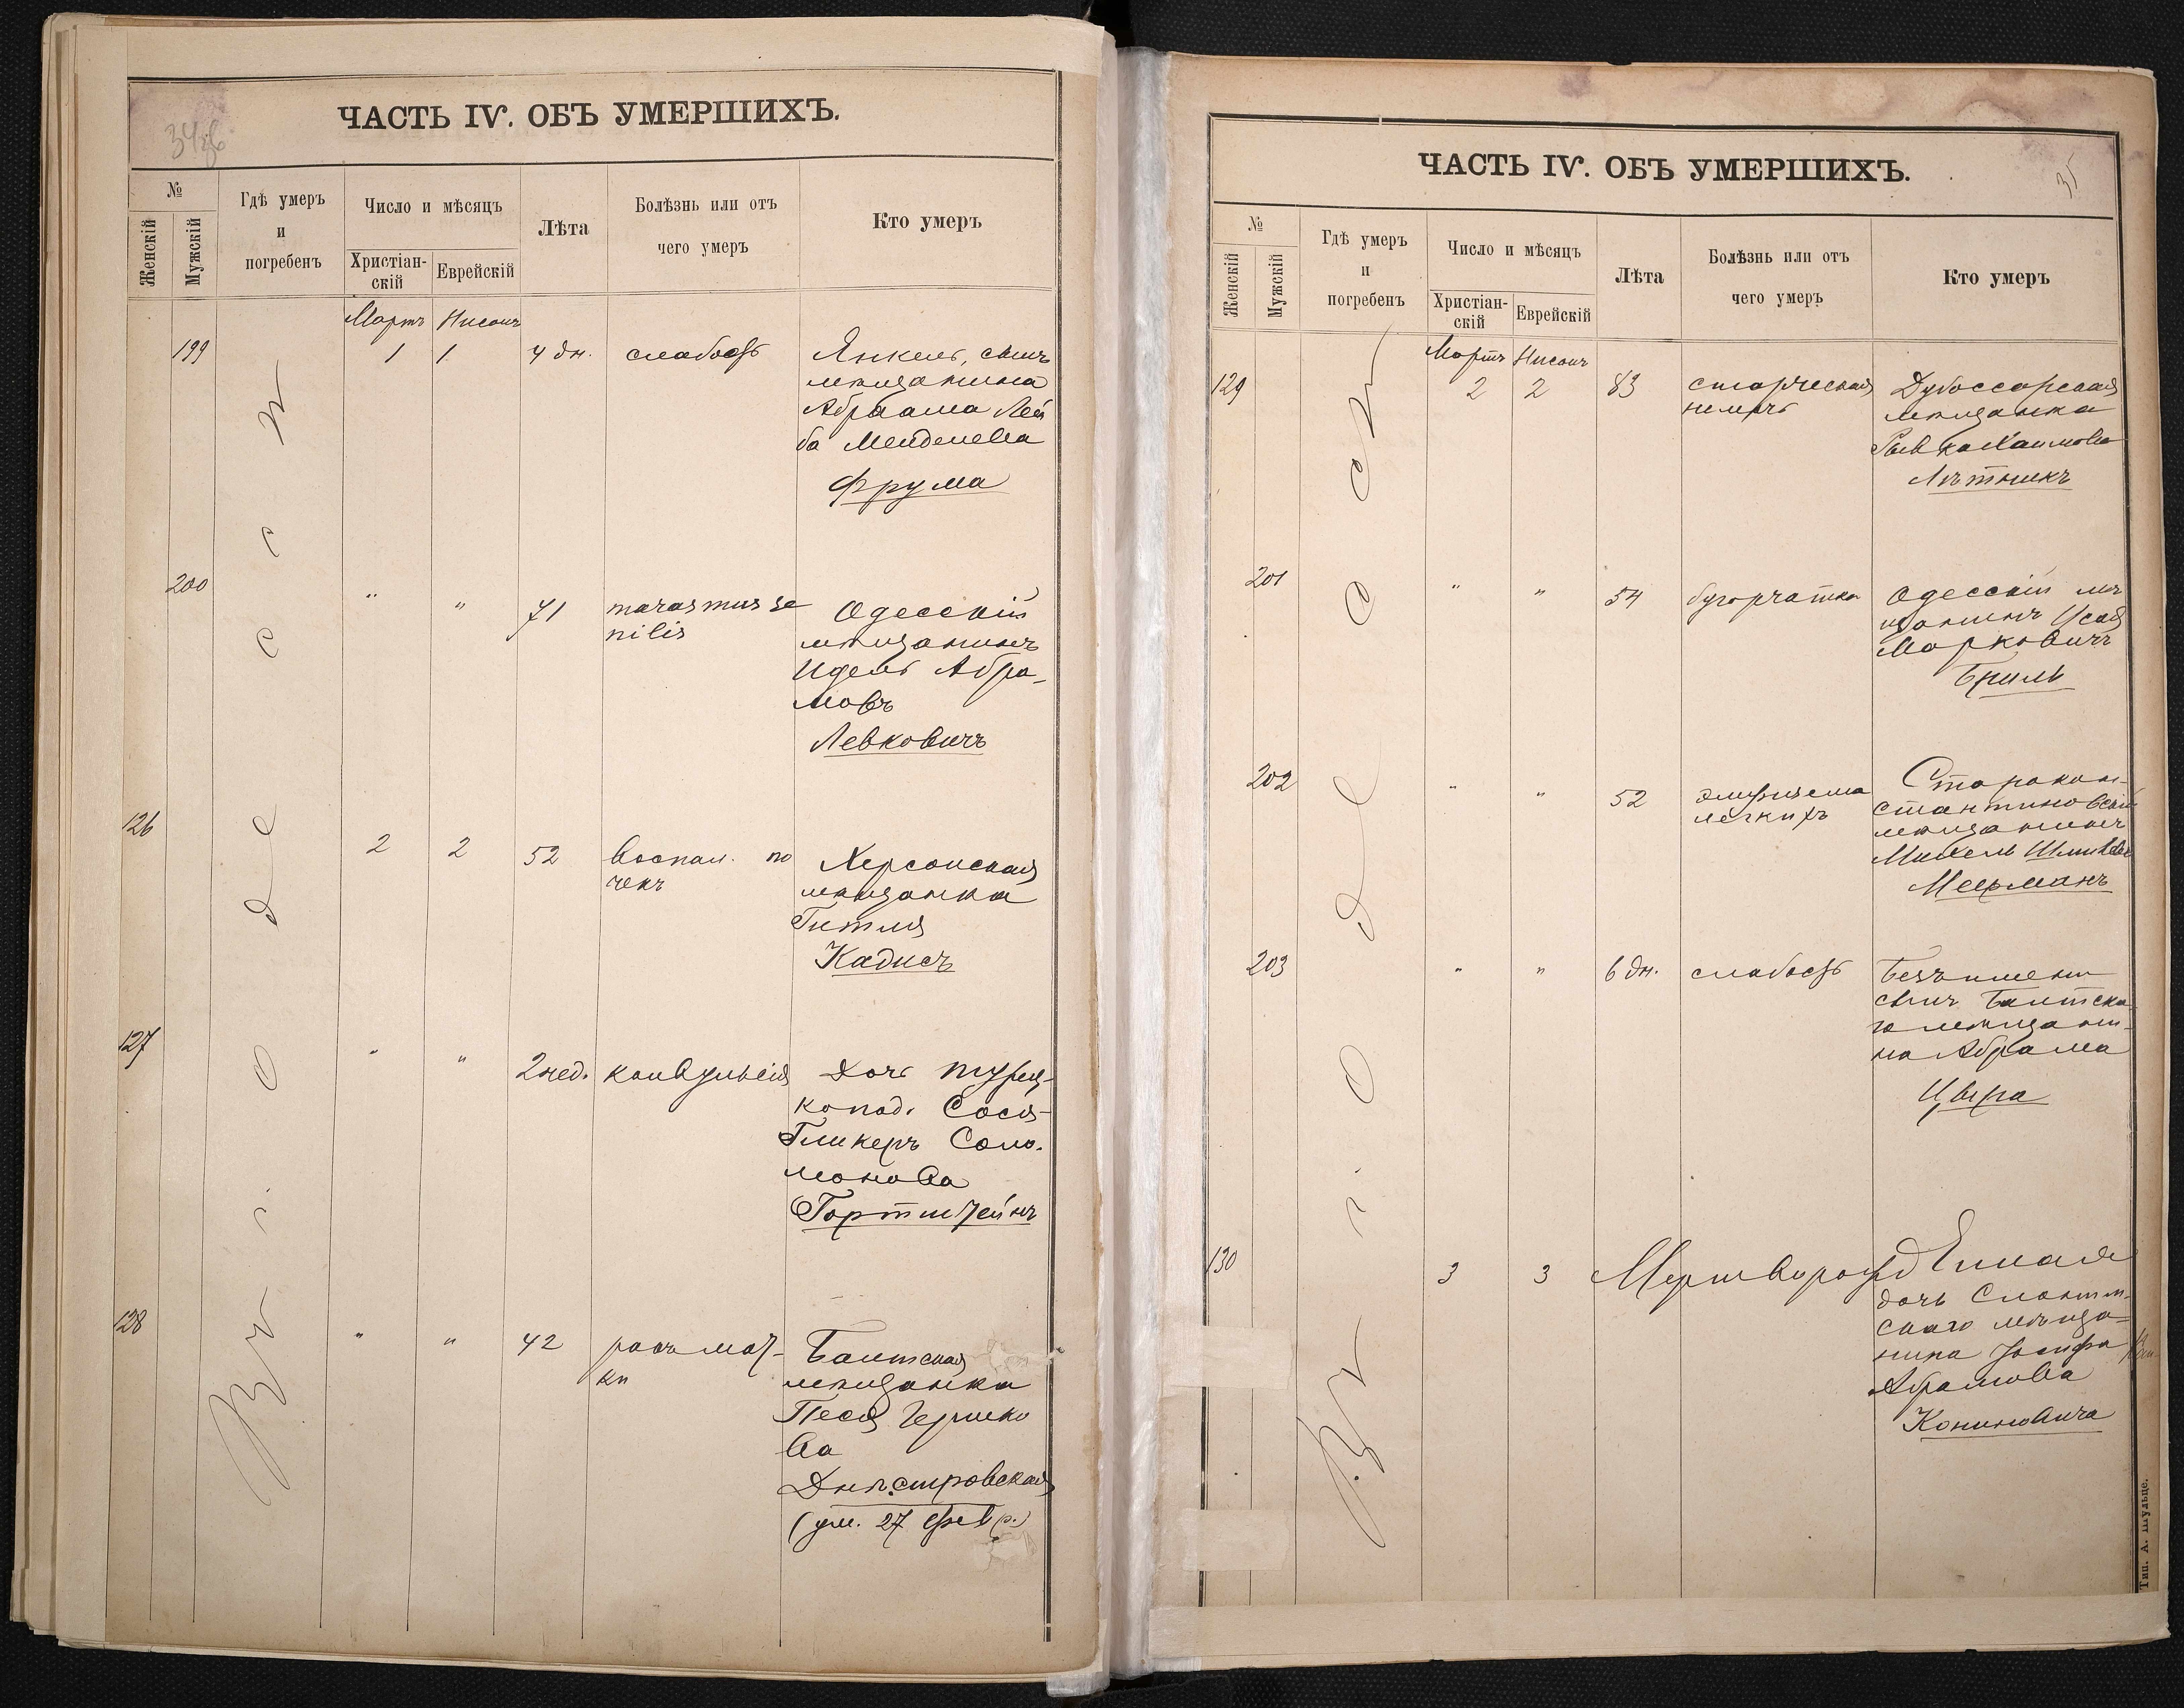 34 об
ЧАСТЬ IV. ОБЪ УМЕРШИХЪ.
№
Женскій
Мужскій
Гдѣ умеръ
и
погребенъ
Число и мѣсяцъ
Христіан-
скій
Еврейскій
Лѣта
Болѣзнь или отъ
чего умеръ
Кто умеръ
Въ г. Одессѣ
Мартъ Нисонъ
199 1 1 4 дн. слабость Янкель, сынъ
мѣщанина
Абраама Лей
ба Менделева
Фрума
200 " " 71 marasmus se Одесскій
nilis мѣщанинъ
Идель Абра-
мовъ
Левковичъ
126 2 2 52 воспал. по Херсонская
чекъ мѣщанка
Гитля
Кадисъ
127 " " 2 нед. конвульсія Дочь турец-
копод. Сося-
Гликеръ Соло-
монова
Гортштейнъ
128 " " 42 ракъ мат- Балтская
ки мѣщанка
Песя Гершко
ва
Днѣстровская
(ум. 27 февр.)
35
ЧАСТЬ IV. ОБЪ УМЕРШИХЪ.
№
Женскій
Мужскій
Гдѣ умеръ
и
погребенъ
Число и мѣсяцъ
Христіан-
скій
Еврейскій
Лѣта
Болѣзнь или отъ
чего умеръ
Кто умеръ
Въ г. Одессѣ
Мартъ Нисонъ
129 2 2 83 старческая Дубоссарская
немочь мѣщанка
Рывка Хаимова
Лѣтникъ
201 " " 54 бугорчатка Одесскій мѣ
щанинъ Исай
Марковичъ
Бриль
202 " " 52 эмфизема Старокон-
легкихъ стантиновскій
мѣщанинъ
Михель
Меерманъ
203 " " 6 дн. слабость Безъимен
сынъ Балтска
го мѣщани-
на Абрама
Цвера
130 3 3 Мертворожд
дочь
скаго мѣща-
нина Іосифа
Абрамова
Кониновича
Тип. А. Шульце.